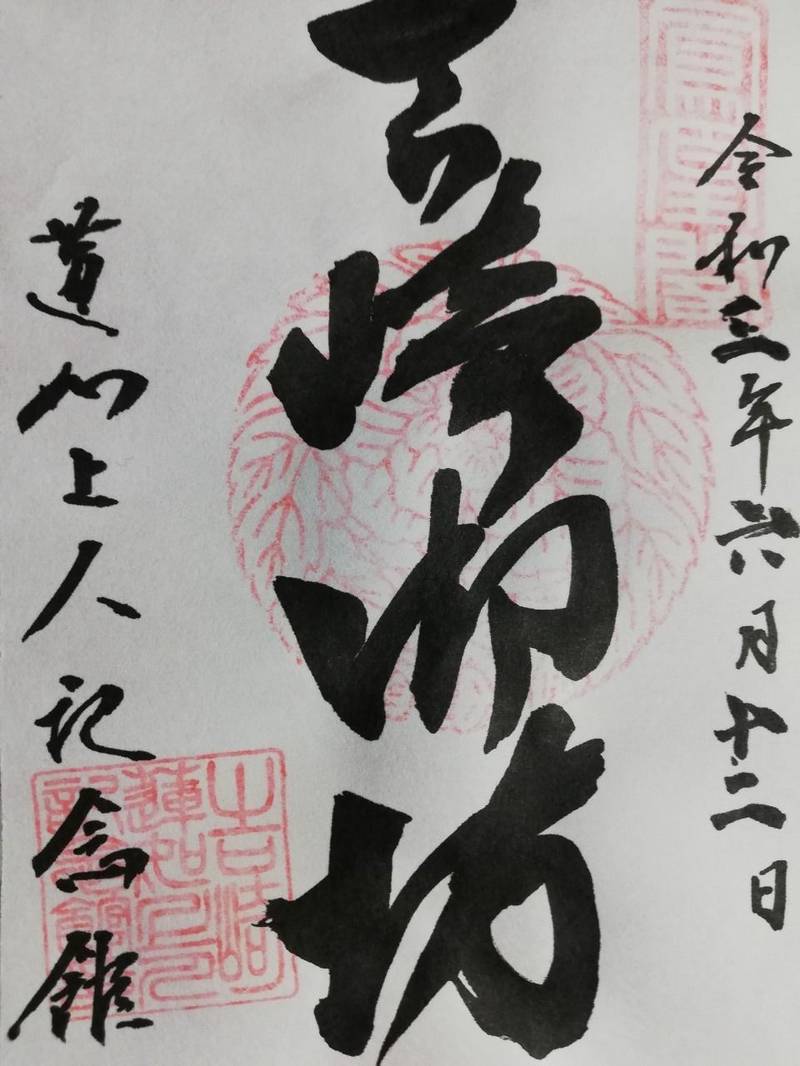 令和三年六月十二日
吉崎御坊
蓮如上人記念館
吉崎
蓮如上人
記念館